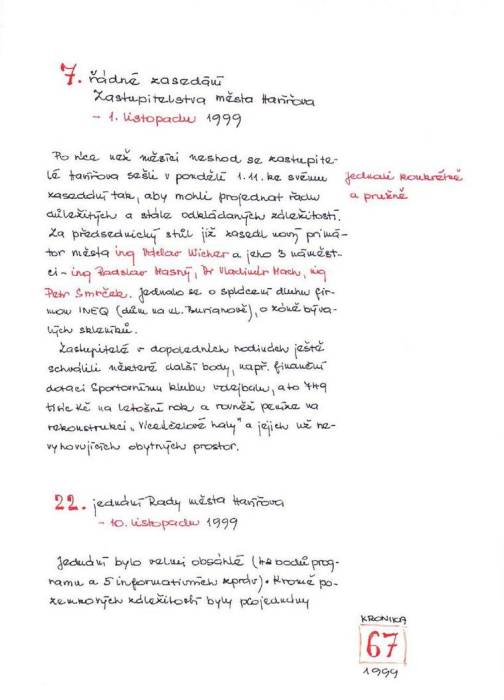 7. řádné zasedání
Zastupitelstva města Havířova
– 1. listopadu 1999
Po více než měsíci neshod se zastupite-
lé Havířova sešli v pondělí 1.11. ke svému
zasedání tak, aby mohli projednat řadu
důležitých a stále odkládaných záležitostí.
Za předsednický stůl již zasedl nový primá-
tor města ing Vdclav Wicher a jeho 3 náměst-
ci – ing Radslav Masný, Dr Vladimír Mach, ing
Petr Smrček. Jednalo se o splácení dluhu fir-
mou INEQ (dům na ul. Burianově), o zóně býva-
lých skleníků.
jednali konkrétně
a pružně
Zastupitelé v dopoledních hodinách ještě
schválili některé další body, např. finanční
dotaci Sportovnímu klubu volejbalu, a to 749
tisíc Kč na letošní rok a rovněž peníze na
rekonstrukci „Víceúčelové haly" a jejich už ne-
vyhovujících obytných prostor.
22. jednání Rady města Havířova
– 10. listopadu 1999
Jednání bylo velmi obsáhlé (42 bodů prog-
ramu a 5 informativních zpráv). Kromě po-
zemkových záležitostí byly projednány
KRONIKA
67
1999